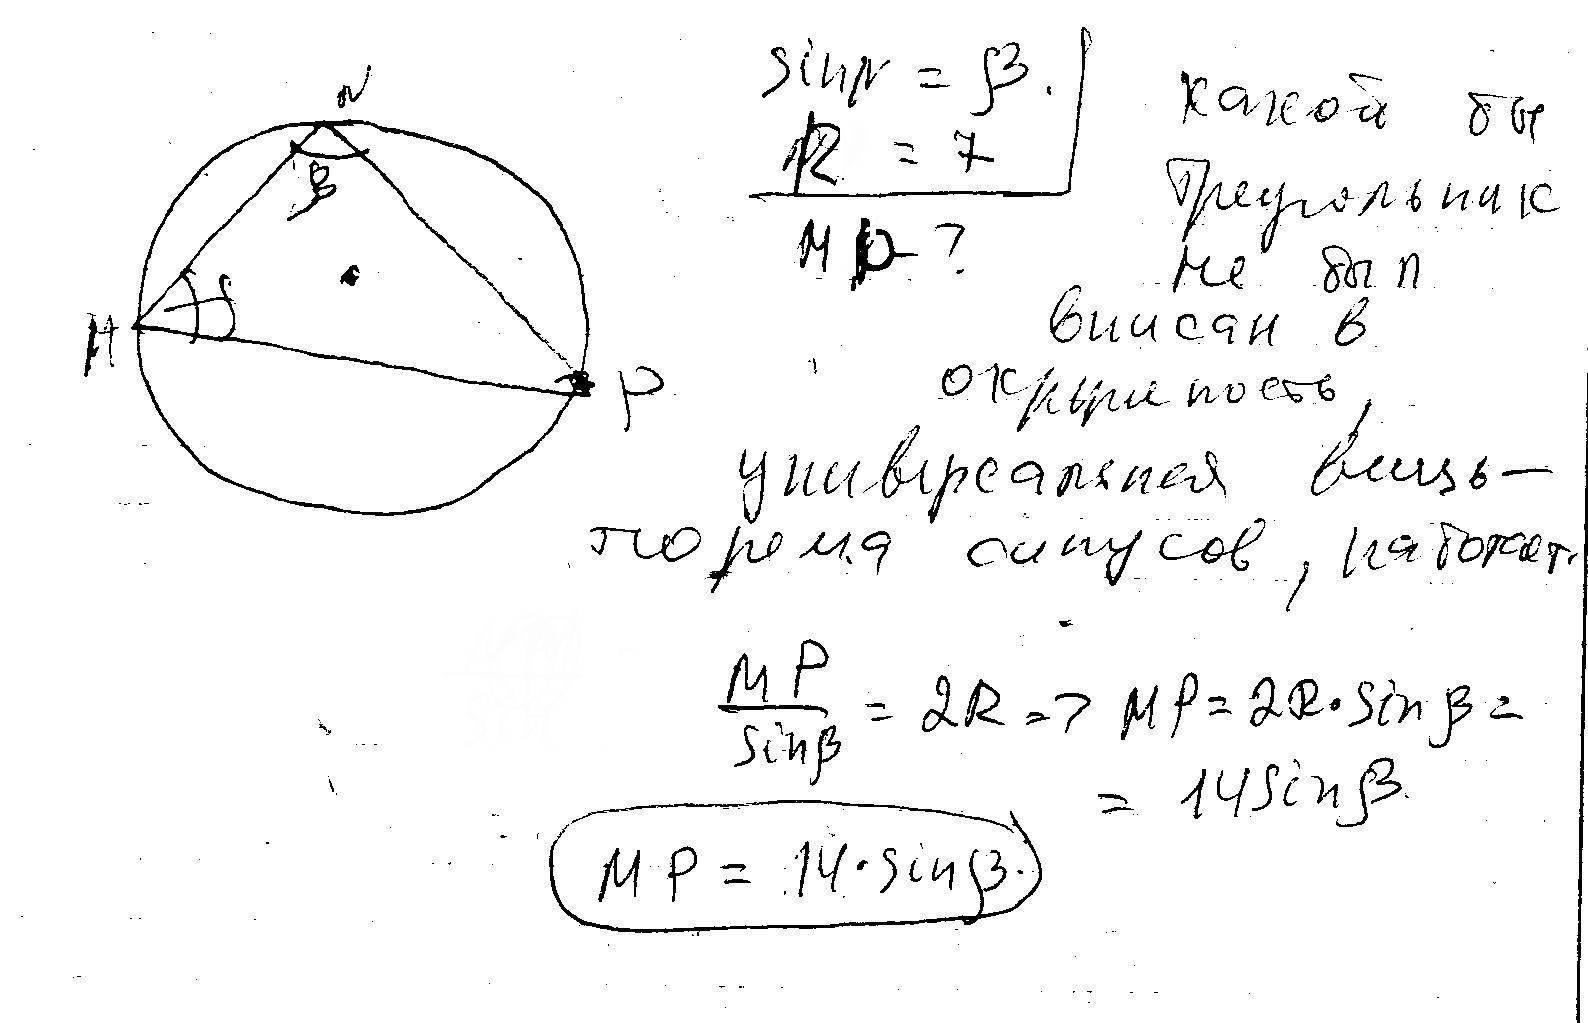 N
β
M
P
sin N = β.
R = 7
MP - ?
какой бы
треугольник
не был
вписан в
окружность,
универсальная вещь -
теорема синусов, работает.
MP / sinβ = 2R => MP = 2R · sin β =
= 14 sin β.
MP = 14 · sin β.